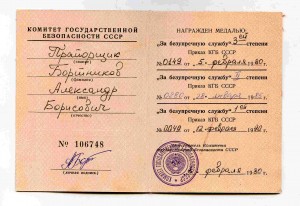 КОМИТЕТ ГОСУДАРСТВЕННОЙ
БЕЗОПАСНОСТИ СССР
Прапорщик
Бортников
Александр
Борисович
№ 106748
НАГРАЖДЕН МЕДАЛЬЮ
„За безупречную службу“ 3 ей степени
Приказ КГБ СССР
№ 0149 от „5“ февраля 1980 г.
„За безупречную службу“ степени
Приказ КГБ СССР
№ от января г.
„За безупречную службу“ 1 ой степени
Приказ КГБ СССР
№ 0049 от „12“ февраля г.
февраля